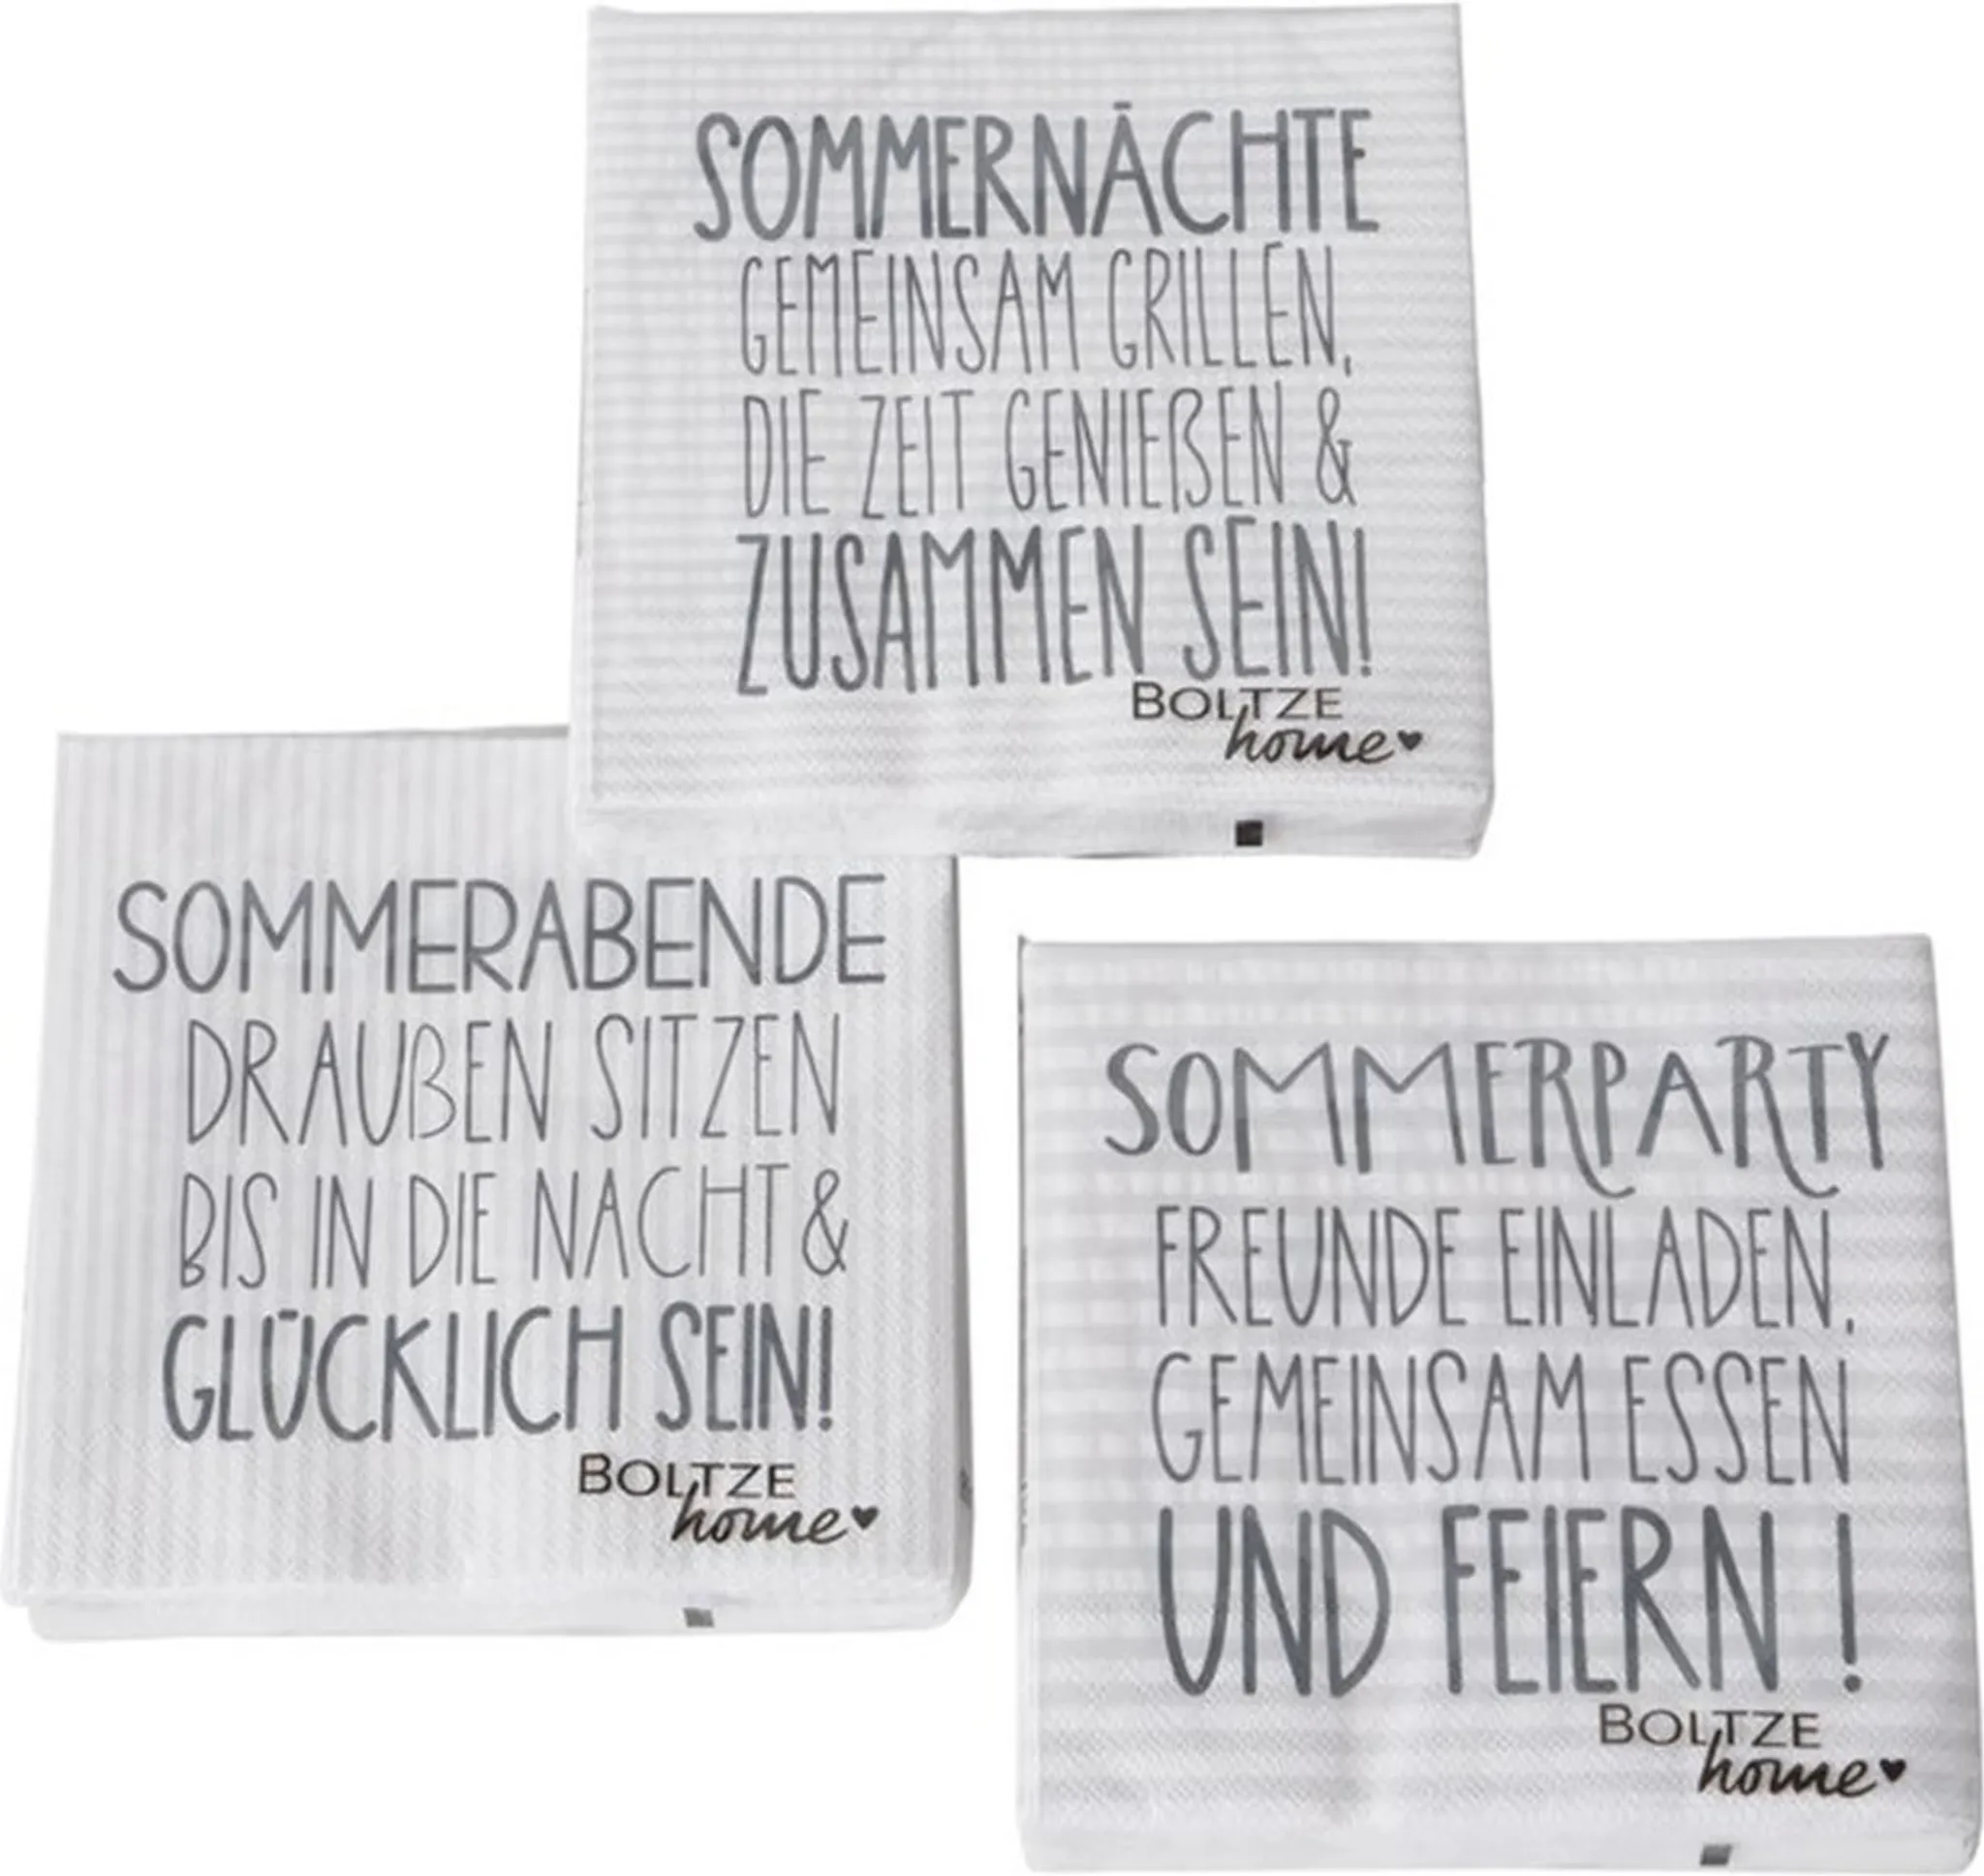 SOMMERNÄCHTE
GEMEINSAM GRILLEN,
DIE ZEIT GENIEßEN &
ZUSAMMEN SEIN!
BOLTZE
home
SOMMERABENDE
DRAUßEN SITZEN
BIS IN DIE NACHT &
GLÜCKLICH SEIN!
BOLTZE
home
SOMMERPARTY
FREUNDE EINLADEN,
GEMEINSAM ESSEN
UND FEIERN !
BOLTZE
home